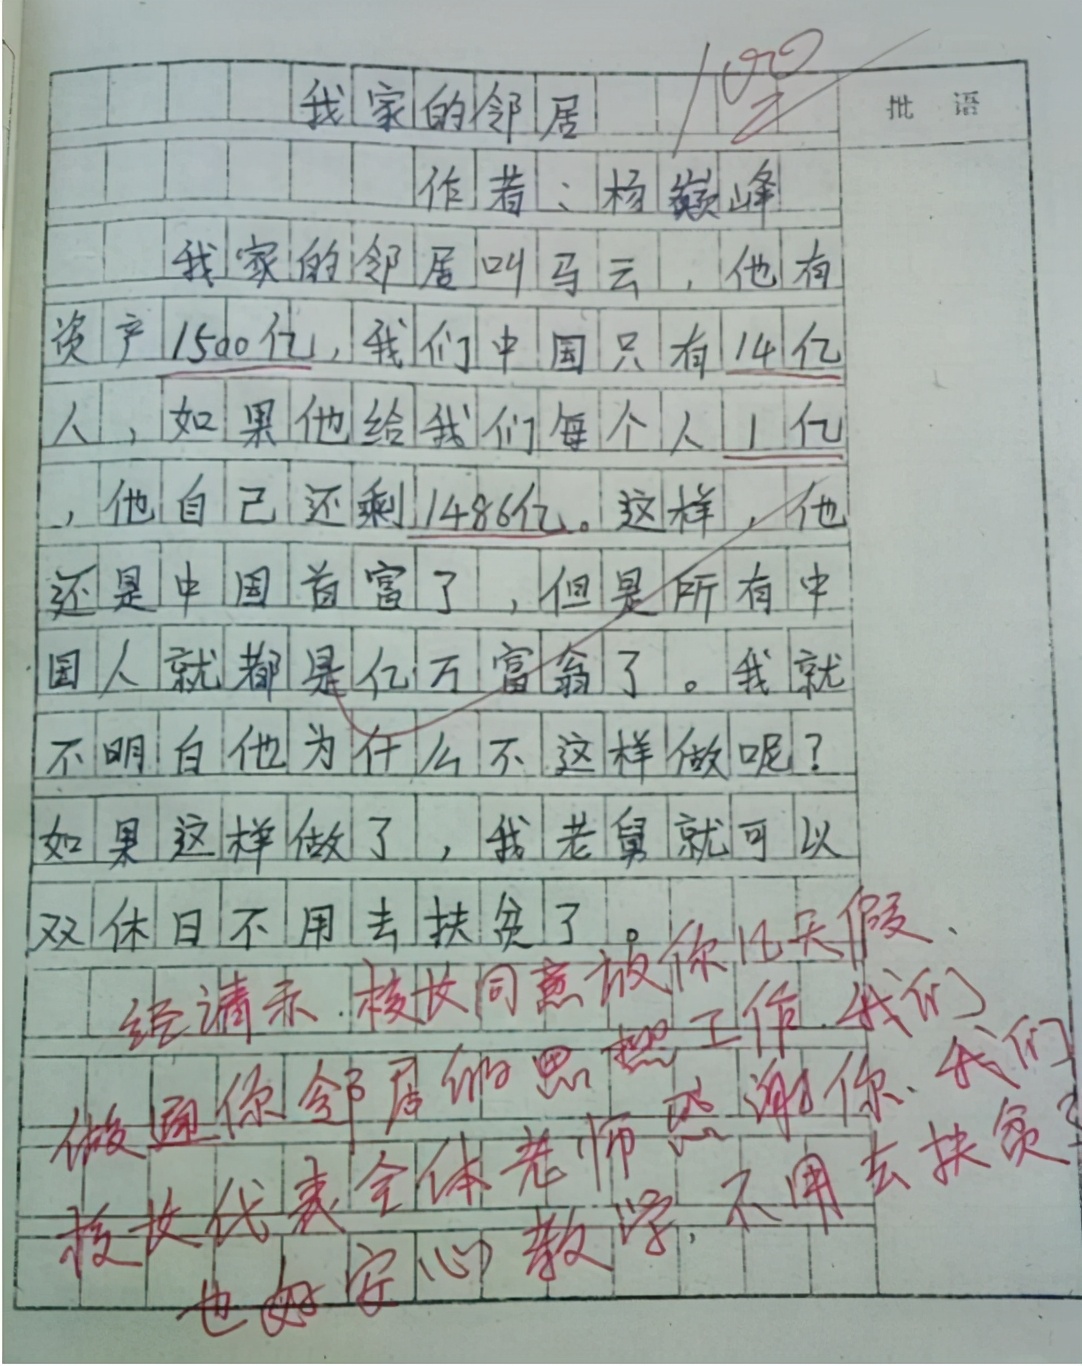 100
批 语
我家的邻居
作者:杨巅峰
我家的邻居叫马云，他有
资产1500亿，我们中国只有14亿
人，如果他给我们每个人1亿
，他自己还剩1486亿。这样，他
还是中国首富了，但是所有中
国人就都是亿万富翁了。我就
不明白他为什么不这样做呢？
如果这样做了，我老舅就可以
双休日不用去扶贫了。
经请示.校长同意放你几天假、
做通你邻居的思想工作.我们
校长代表全体老师感谢你、我们
也好安心教学,不用去扶贫了